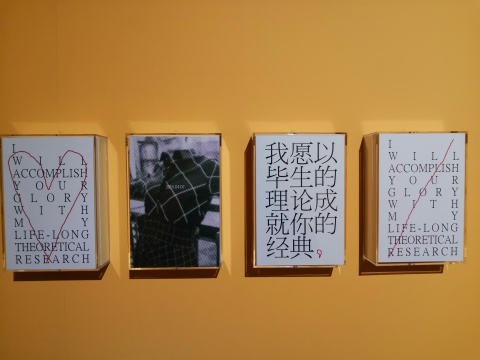 I
WILL
ACCOMPLISH
YOUR
GLORY
WITH
MY
LIFE-LONG
THEORETICAL
RESEARCH
我愿以
毕生的
理论成
就你的
经典。
I
WILL
ACCOMPLISH
YOUR
GLORY
WITH
MY
LIFE-LONG
THEORETICAL
RESEARCH